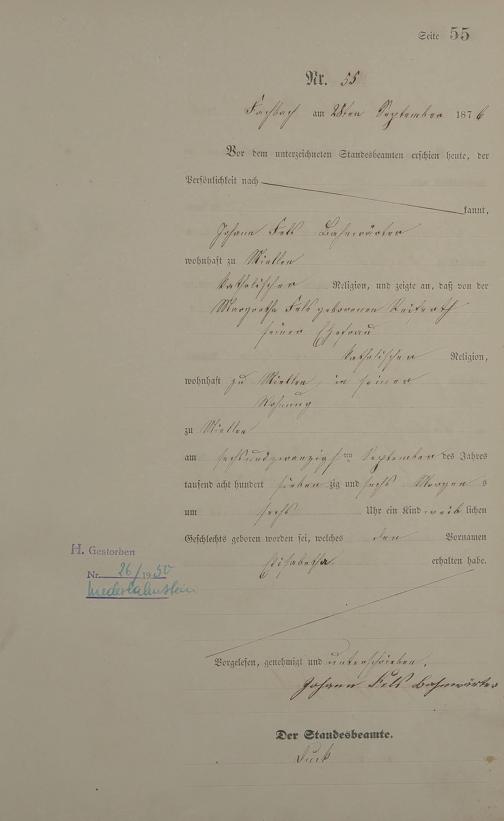 Seite 55
Nr. 55
Fachbach am 28ten September 1876
Vor dem unterzeichneten Standesbeamten erschien heute, der
Persönlichkeit nach
kannt,
Johann Fels Bahnwärter
wohnhaft zu Miellen
katholischer Religion, und zeigte an, daß von der
Margaretha Fels geborenen
seiner Ehefrau
katholischer Religion,
wohnhaft zu Miellen, in seiner
Wohnung
zu Miellen
am sechsundzwanzigsten September des Jahres
tausend acht hundert sieben zig und sechs Morgen s
um sechs Uhr ein Kind weib lichen
Geschlechts geboren worden sei, welches den Vornamen
Elisabetha erhalten habe.
H. Gestorben
Nr. 26/1950
Niederlahnstein
Vorgelesen, genehmigt und unterschrieben.
Johann Fels Bahnwärter
Der Standesbeamte.